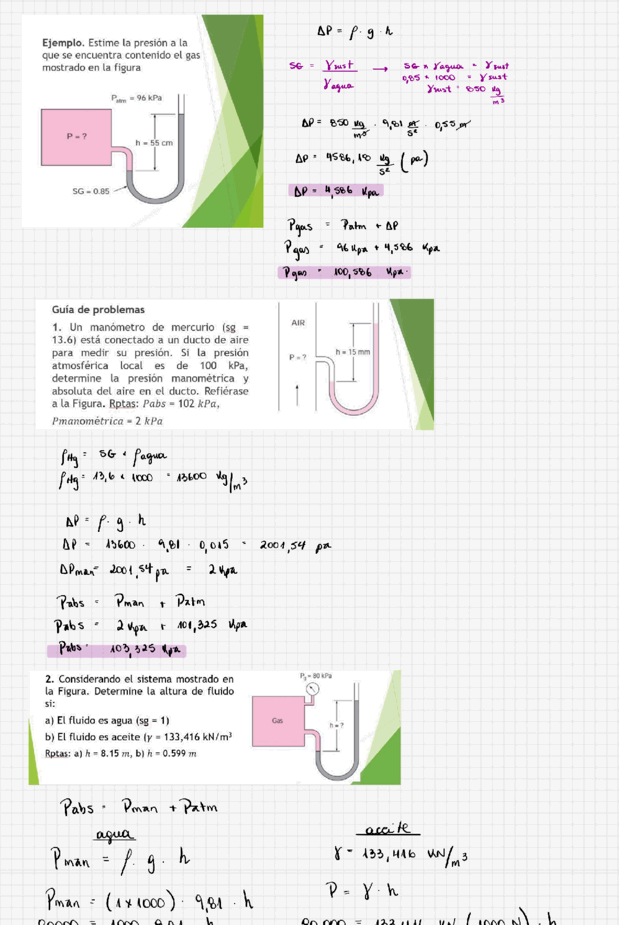 Ejemplo. Estime la presión a la
que se encuentra contenido el gas
mostrado en la figura
Patm = 96 kPa
P = ?
h = 55 cm
SG = 0.85
ΔP = ρ · g · h
SG = γsust / γagua → SG × γagua = γsust
0,85 × 1000 = γsust
γsust = 850 kg/m³
ΔP = 850 kg/m³ · 9,81 m/s² · 0,55 m
ΔP = 4586,18 kg/s² (pa)
ΔP = 4,586 Kpa
Pgas = Patm + ΔP
Pgas = 96 Kpa + 4,586 Kpa
Pgas = 100,586 Kpa.
Guía de problemas
1. Un manómetro de mercurio (sg =
13.6) está conectado a un ducto de aire
para medir su presión. Si la presión
atmosférica local es de 100 kPa,
determine la presión manométrica y
absoluta del aire en el ducto. Refiérase
a la Figura. Rptas: Pabs = 102 kPa,
Pmanométrica = 2 kPa
AIR
P = ?
h = 15 mm
ρHg = SG × ρagua
ρHg = 13,6 × 1000 = 13600 kg/m³
ΔP = ρ · g · h
ΔP = 13600 · 9,81 · 0,015 = 2001,54 pa
ΔPman = 2001,54 pa = 2 Kpa
Pabs = Pman + Patm
Pabs = 2 Kpa + 101,325 Kpa
Pabs = 103,325 Kpa
2. Considerando el sistema mostrado en
la Figura. Determine la altura de fluido
si:
a) El fluido es agua (sg = 1)
b) El fluido es aceite (γ = 133,416 kN/m³
Rptas: a) h = 8.15 m, b) h = 0.599 m
Pg = 80 kPa
Gas
h = ?
Pabs = Pman + Patm
agua
Pman = ρ · g · h
Pman = (1 × 1000) · 9,81 · h
aceite
γ = 133,416 KN/m³
P = γ · h